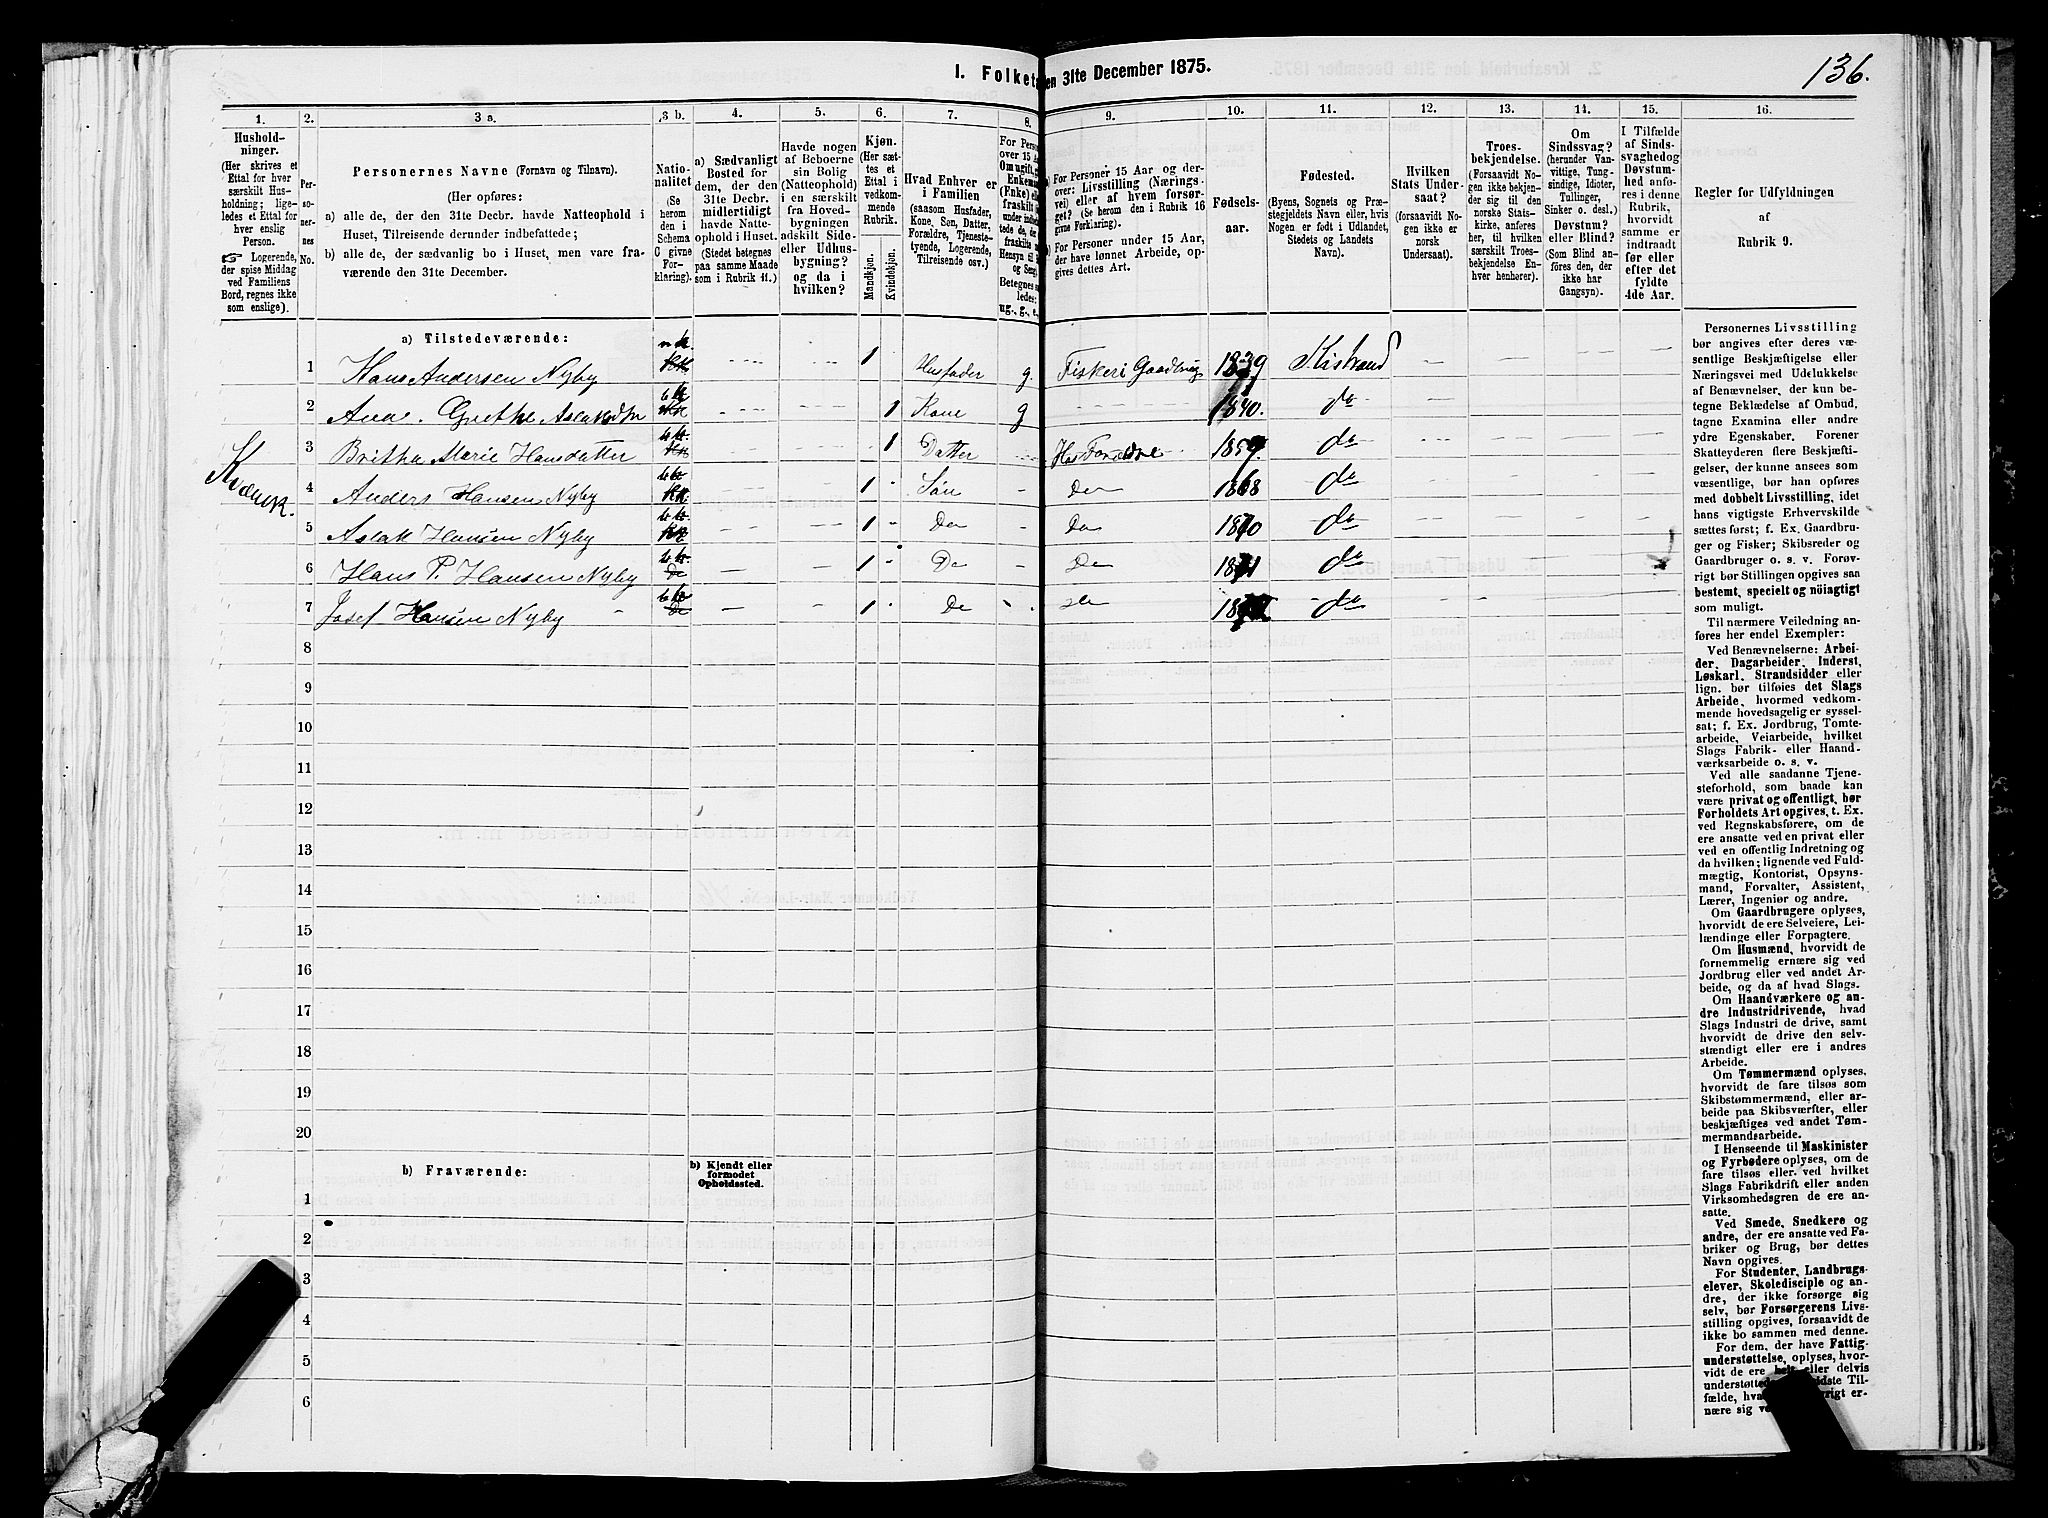 I. Folketa en 31te December 1875.
136.
1. 2. 3 a. 3 b. 4. 5. 6. 7. 8. 9. 10. 11. 12. 13. 14. 15. 16.
Hushold-
ninger.
(Her skrives et
Ettal for hver
særskilt Hus-
holdning; lige-
ledes et Ettal for
hver enslig
Person.
☞ Logerende,
der spise Middag
ved Familiens
Bord, regnes ikke
som enslige).
Per-
so-
ner-
nes
No.
Personernes Navne (Fornavn og Tilnavn).
(Her opføres:
a) alle de, der den 31te Decbr. havde Natteophold i
Huset, Tilreisende derunder indbefattede;
b) alle de, der sædvanlig bo i Huset, men vare fra-
værende den 31te December.
Natio-
nalitet
(Se
herom
den i
Schema
C givne
For-
klaring).
a) Sædvanligt
Bosted for
dem, der den
31te Decbr.
midlertidigt
havde Natte-
ophold i Huset.
(Stedet betegnes
paa samme Maade
som i Rubrik 11.)
Havde nogen
af Beboerne
sin Bolig
(Natteophold)
i en særskilt
fra Hoved-
bygningen
adskilt Side-
eller Udhus-
bygning?
og da i
hvilken?
Kjøn.
(Her sæt-
tes et
Ettal i
vedkom-
mende
Rubrik.
Mandkjøn.
Kvindekjøn.
Hvad Enhver er
i Familien
(saasom Husfader,
Kone, Søn, Datter,
Forældre, Tjeneste-
tyende, Logerende,
Tilreisende osv.)
For Perso
over 15 Aa
Om ugift, g
Enkema
(Enke) elle
fraskilt
under indbe
tede de, de
fraskilte
Hensyn til B
og Seng.
Betegnes sa
ledes:
ug., g., e.,
a) For Personer 15 Aar og der-
over: Livsstilling (Nærings-
vei) eller af hvem forsør-
get? (Se herom den i Rubrik 16
givne Forklaring).
b) For Personer under 15 Aar,
der have lønnet Arbeide, op-
gives dettes Art.
Fødsels-
aar.
Fødested.
(Byens, Sognets og Præ-
stegjeldets Navn eller, hvis
Nogen er født i Udlandet,
Stedets og Landets
Navn).
Hvilken
Stats Under-
saat?
(forsaavidt No-
gen ikke er
norsk
Undersaat).
Troes-
bekjendelse.
(Forsaavidt No-
gen ikke bekjen-
der sig til den
norske Stats-
kirke, anføres
her, til hvilken
særskilt Troes-
bekjendelse En-
hver henhører).
Om
Sindssvag?
(herunder Van-
vittige, Tung-
sindige, Idioter,
Tullinger,
Sinker o. desl.)
Døvstum?
eller Blind?
(Som Blind an-
føres den, der
ikke har
Gangsyn).
I Tilfælde
af Sinds-
svaghed og
Døvstum-
hed anfø-
res i denne
Rubrik,
hvorvidt
samme er
indtraadt
før eller
efter det
fyldte
4de Aar.
Regler for Udfyldningen
af
Rubrik 9.
a) Tilstedeværende:
1 Hans Andersen Nyby 1 Husfader g. Fiskeri Gaadbrug 1839 Kistrand
2 Ane. Grethe Aslaksdtr 1 Kone g 1840. do
3 Britha Marie Hansdatter 1 Datter Hos Forældre 1859. do
Kvænsk.
4 Anders Hansen Nyby 1 Søn Do 1868 do
5 Aslak Hansen Nyby 1 Do Do 1870 do
6 Hans P. Hansen Nyby 1 Do Do 1871 do
7 Josef Hansen Nyby 1 Do do do
8
9
10
11
12
13
14
15
16
17
18
19
20
b) Fraværende:
b) Kjendt eller
formodet
Opholdssted.
1
2
3
4
5
6
Personernes Livsstilling
bør angives efter deres væ-
sentlige Beskjæftigelse eller
Næringsvei med Udelukkelse
af Benævnelser, der kun be-
tegne Beklædelse af Ombud,
tagne Examina eller andre
ydre Egenskaber. Forener
Skatteyderen flere Beskjæfti-
gelser, der kunne ansees som
væsentlige, bør han opføres
med dobbelt Livsstilling, idet
hans vigtigste Erhvervskilde
sættes først; f. Ex. Gaardbru-
ger og Fisker; Skibsreder og
Gaardbruger o. s. v. Forøv-
rigt bør Stillingen opgives saa
bestemt, specielt og nöiagtigt
som muligt.
Til nærmere Veiledning an-
føres her endel Exempler:
Ved Benævnelserne: Arbei-
der, Dagarbeider, Inderst,
Løskarl, Strandsidder eller
lign. bør tilføies det Slags
Arbeide, hvormed vedkom-
mende hovedsagelig er syssel-
sat; f. Ex. Jordbrug, Tomte-
arbeide, Veiarbeide, hvilket
Slags Fabrik- eller Haand-
værksarbeide o. s. v.
Ved alle saadanne Tjene-
steforhold, som baade kan
være privat og offentligt, bør
Forholdets Art opgives, t. Ex.
ved Regnskabsførere, om de
ere ansatte ved en privat eller
ved en offentlig Indretning og
da hvilken; lignende ved Fuld-
mægtig, Kontorist, Opsyns-
mand, Forvalter, Assistent,
Lærer, Ingeniør og andre.
Om Gaardbrugere oplyses,
hvorvidt de ere Selveiere, Lei-
lændinge eller Forpagtere.
Om Husmænd, hvorvidt de
fornemmelig ernære sig ved
Jordbrug eller ved andet Ar-
beide, og da af hvad Slags.
Om Haandværkere og an-
dre Industridrivende, hvad
Slags Industri de drive, samt
hvorvidt de drive den selv-
stændigt eller ere i andres
Arbeide.
Om Tømmermænd oplyses,
hvorvidt de fare tilsøs som
Skibstømmermænd, eller ar-
beide paa Skibsværfter, eller
beskjæftiges ved andet Tøm-
mermandsarbeide.
I Henseende til Maskinister
og Fyrbødere oplyses, om de
fare tilsøs eller ved hvilket
Slags Fabrikdrift eller anden
Virksomhedsgren de ere an-
satte.
Ved Smede, Snedkere og
andre, der ere ansatte ved Fa-
briker og Brug, bør dettes
Navn opgives.
For Studenter, Landbrugs-
elever, Skoledisciple og an-
dre, der ikke forsørge sig
selv, bør Forsørgerens Livs-
stilling opgives, forsaavidt de
ikke bo sammen med denne.
For dem, der have Fattig-
understøttelse, oplyses, hvor-
vidt de ere helt eller delvis
understøtte idste Til-
fælde, hva rigt er-
nære sig v